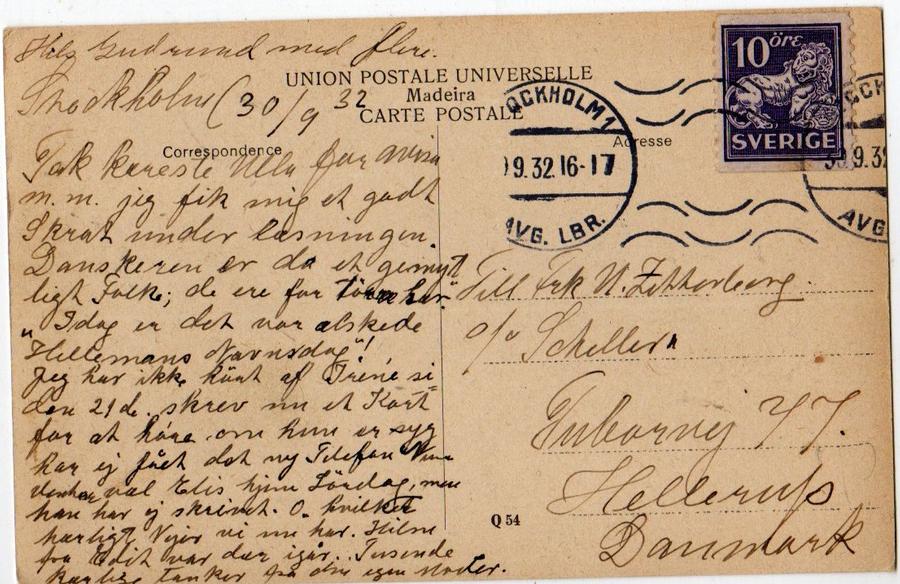 Hils Gudrund med flere.
Stockholm (30/9 32
UNION POSTALE UNIVERSELLE
Madeira
CARTE POSTALE
Correspondence
Tak kæreste Ulla for avisa
m.m. jeg fik mig et godt
Skrat under læsningen.
Danskeren er da et gemyt
ligt Folk; de ere for
"Idag er det vor ælskede
Hellemans Navnsdag"!
Jeg har ikke hört af Iréne si
den 21 d. skrev nu et Kort
for at höre om hun er syg
har ej fået det ny Telefon
vel Elis hjem Lördag, men
han har ej skrivet. O. hvilket
härligt Vejr vi nu har. Hilsn
fra Edit var der igår. Tusende
kærlige tanker fra din egen Moder.
10 öre
SVERIGE
STOCKHOLM 1
9.32.16-17
AVG. LBR.
30.9.32
AVG
Adresse
Till Frk U. Zetterberg
c/o Scheller
Tuborvej 77.
Hellerup
Danmark
Q 54